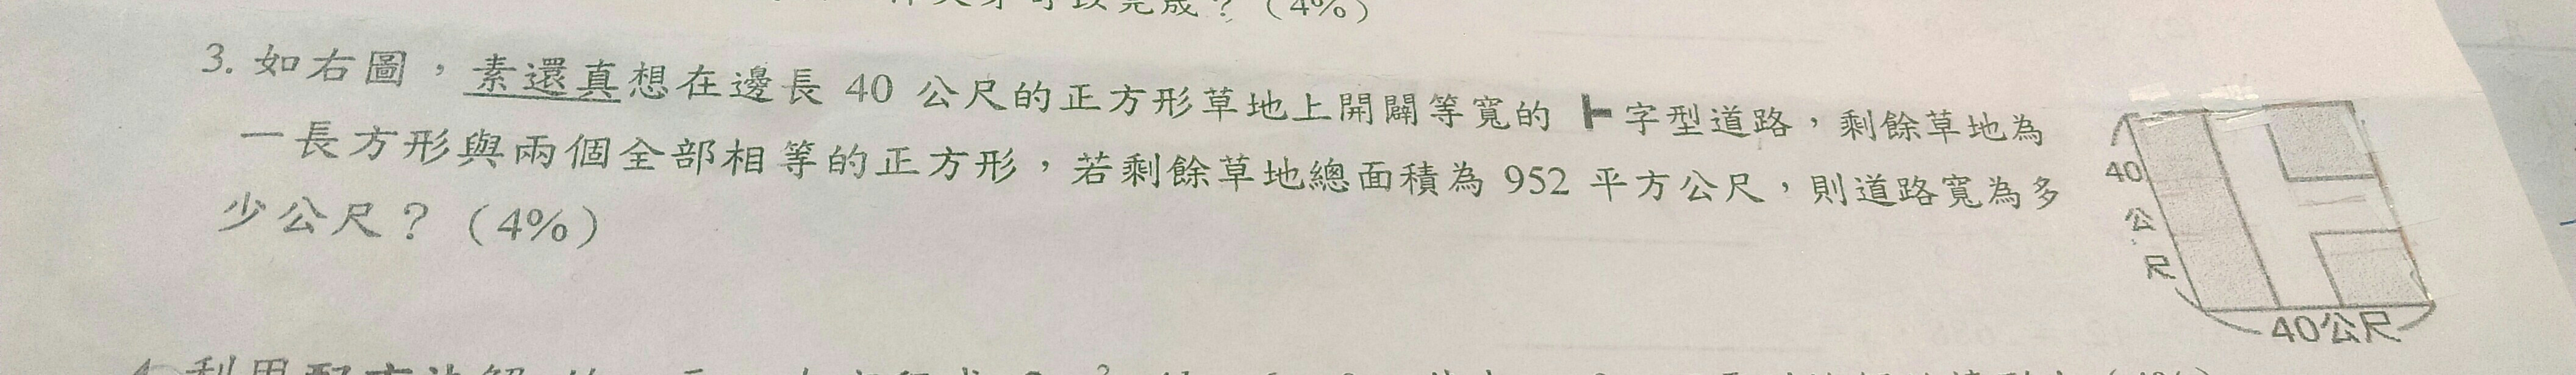 可以完成？（4%）
3. 如右圖，素還真想在邊長 40 公尺的正方形草地上開闢等寬的 ┣ 字型道路，剩餘草地為
一長方形與兩個全部相等的正方形，若剩餘草地總面積為 952 平方公尺，則道路寬為多
少公尺？（4%）
40
公
尺
40公尺
4. 利用配方法解